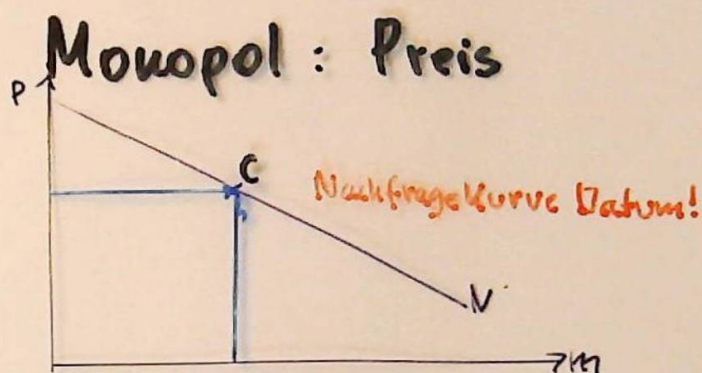 Monopol : Preis
P
C
Nachfragekurve Datum!
N
m